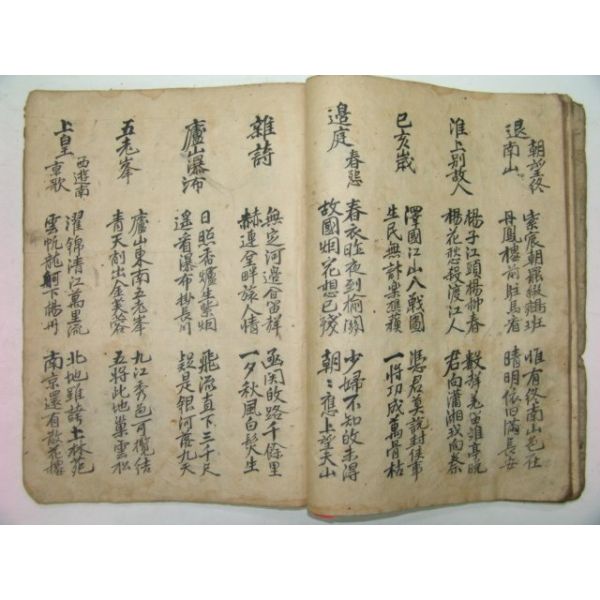 退朝望終南山
紫宸朝罷綴鵷班 惟有終南山色在
丹鳳樓前駐馬看 晴明依旧滿長安
淮上別故人
楊子江頭楊柳春 數聲羌笛離亭晚
楊花愁殺渡江人 君向瀟湘我向秦
己亥歲
澤國江山入戰國 憑君莫說封侯事
生民無計樂樵蘇 一將功成萬骨枯
邊庭春怨
春衣昨夜到榆關 少婦不知的未得
故國烟花想已殘 朝〻應上望天山
雜詩
無定河邊合笛群 函関的路千餘里
赫連全畔旅人情 一夕秋風白髮生
廬山瀑布
日照香爐生紫烟 飛流直下三千尺
遙看瀑布掛長川 疑是銀河落九天
五老峯
廬山東南五老峯 九江秀色可攬結
青天削出金芙蓉 五將此地巢雲松
上皇西遊南京歌
濯錦清江萬里流 北地雖誇上林苑
雲帆龍舸下楊州 南京還有散花樓